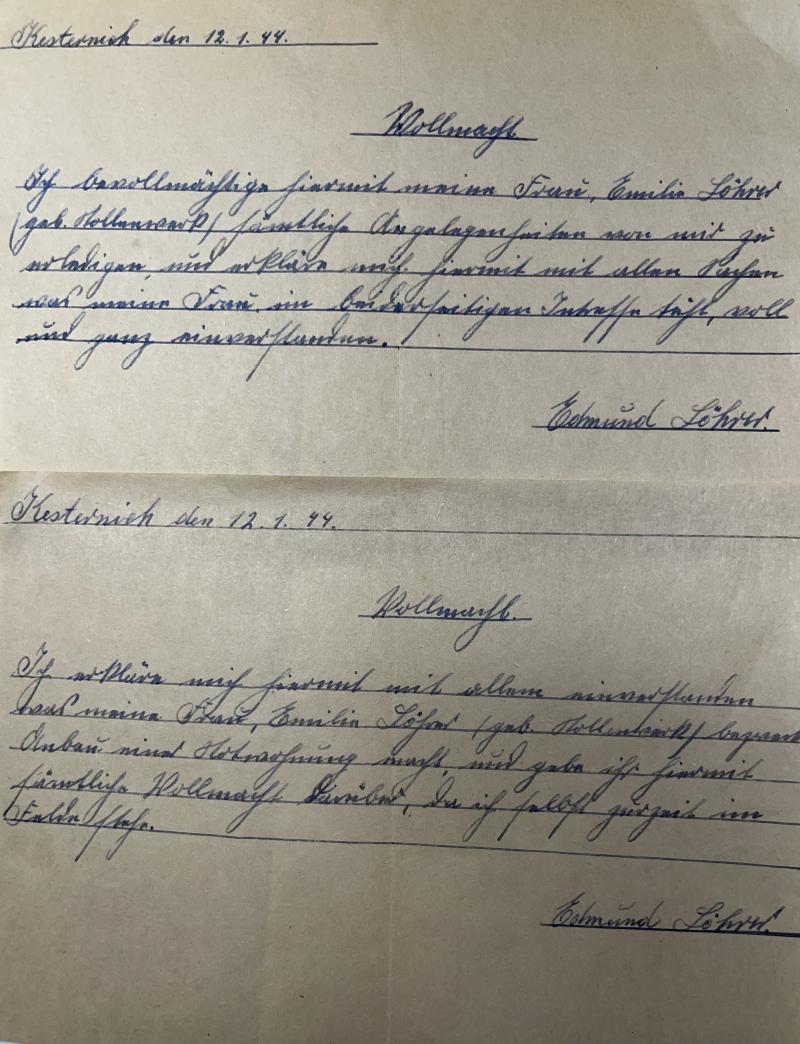 Kesternich den 12.1.44.
Vollmacht
Ich bevollmächtige hiermit meine Frau, Emilie Löhrer
(geb. Hollenwerk) sämtliche Angelegenheiten von mir zu
erledigen, und erkläre mich hiermit mit allen Sachen
was meine Frau, im beiderseitigen Intresse tuht, voll
und ganz einverstanden.
Edmund Löhrer.
Kesternich den 12.1.44.
Vollmacht.
Ich erkläre mich hiermit mit allem einverstanden
was meine Frau, Emilie Löhrer (geb. Hollenwerk) bezweck
Anbau einer Notwohnung macht, und gebe ihr hiermit
sämtliche Vollmacht darüber, da ich selbst zurzeit im
Felde stehe.
Edmund Löhrer.